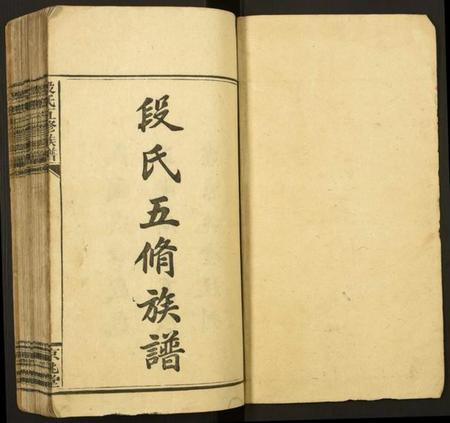 段氏五脩族譜
段氏五修族譜